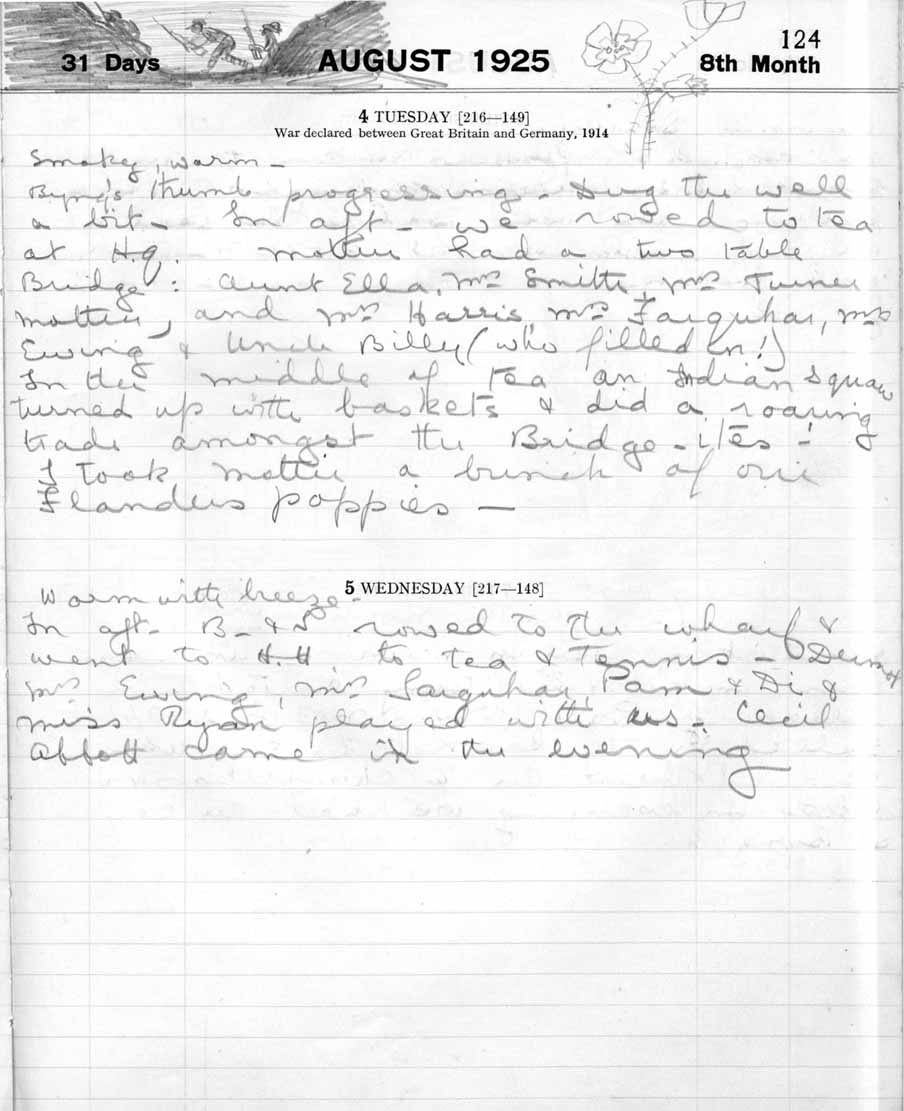 124
31 Days AUGUST 1925 8th Month
4 TUESDAY [216—149]
War declared between Great Britain and Germany, 1914
Smoky, warm –
thumb progressing – Dug the well
a bit – In aft – we rowed to tea
at H.Q. Mother had a two table
Bridge: Aunt Ella, Mrs Smith, Mrs Turner
Mother, and Mrs Harris, Mrs Farquhar, Mrs
Ewing & Uncle Billy (who filled in!)
In the middle of tea an Indian squaw
turned up with baskets & did a roaring
trade amongst the Bridge-ites –
I took Mother a bunch of our
Flanders poppies —
5 WEDNESDAY [217—148]
Warm with breeze –
In aft – B – & I rowed to the wharf &
went to H.H. to tea & Tennis – Dermot
Mrs Ewing, Mrs Farquhar, Pam & Di &
Miss Ryan played with us. Cecil
Abbott came in the evening